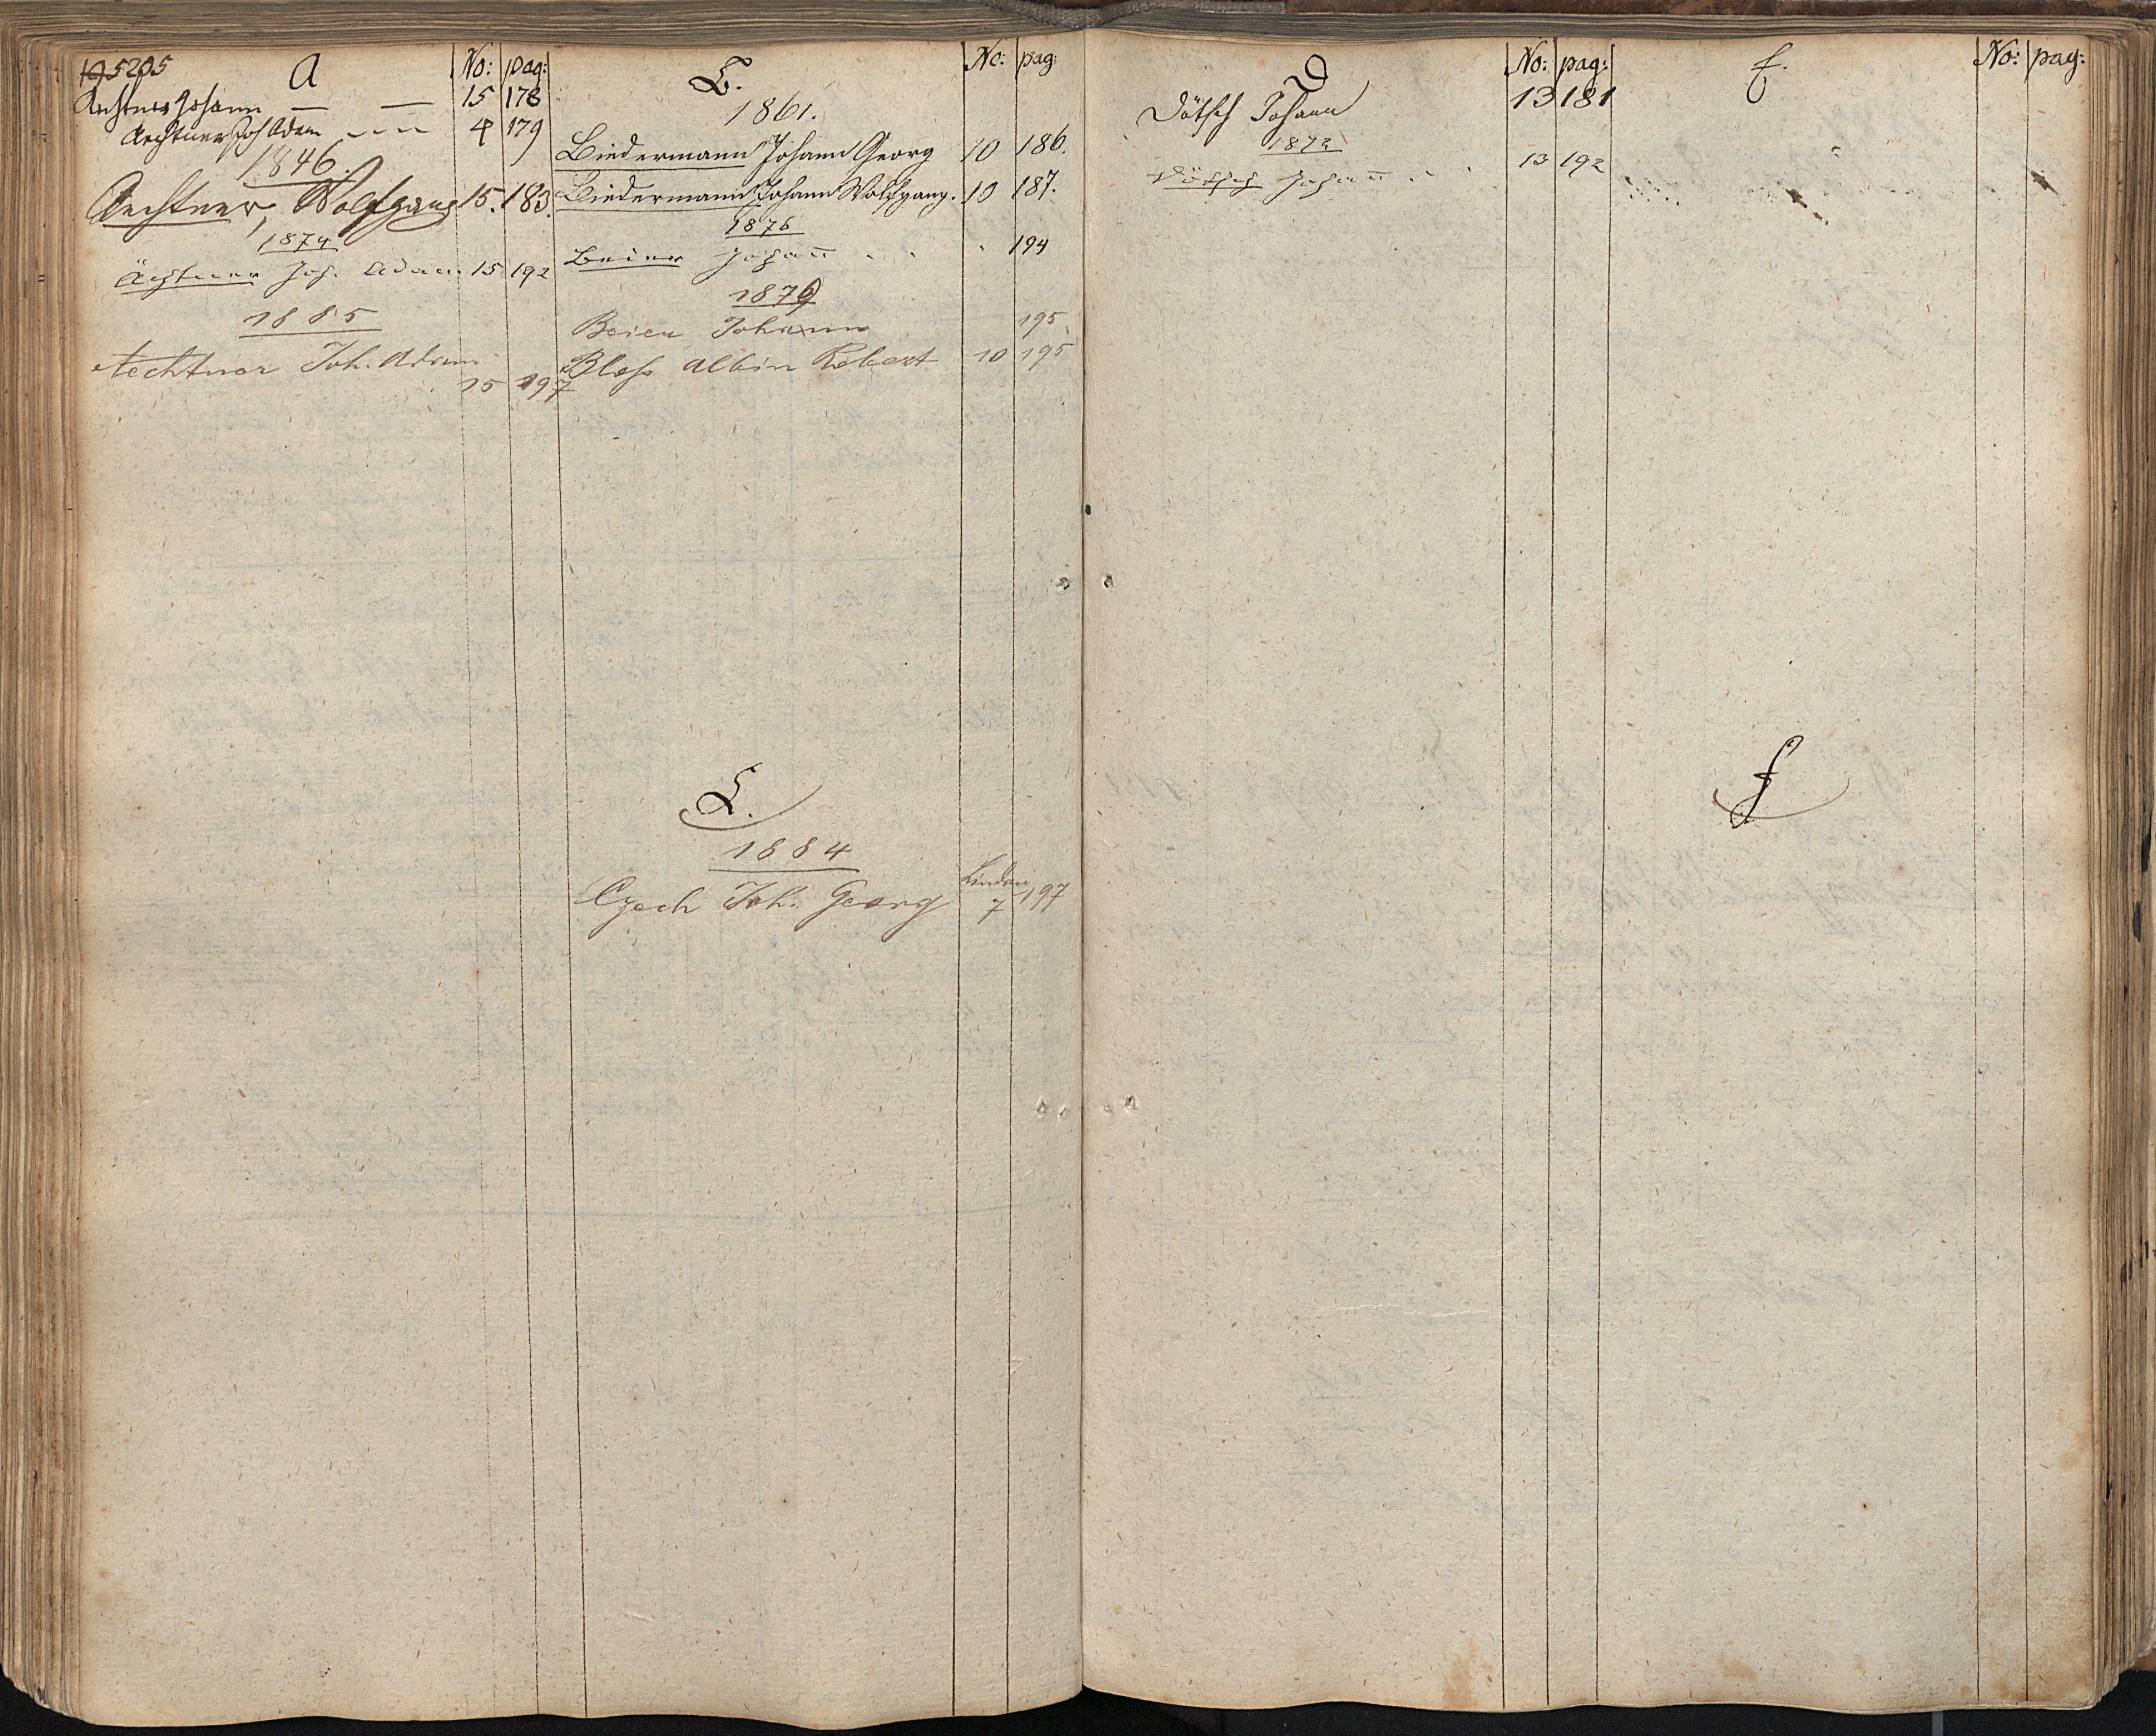 195 205
A No: pag:
Aechtner Johann — — 15 178
Aechtner Joh Adam — 4 179
1846.
Aechtner, Wolfgang 15. 183.
1874
Ächtner Joh. Adam 15 192
1885
Aechtner Joh. Adam
15 197
B. No: pag:
1861.
Biedermann Johann Georg 10 186.
Biedermann Johann Wolfgang. 10 187.
1876
Beier Johann . . . 194
1879
Beier Johann 195
Bloss Albin Robert 10 195
C.
1884
Czech Joh. Georg Lindau 7 197
D No: pag:
Dötsch Johann 13 181
1872
Dötsch Johann . . 13 192
E. No: pag:
F